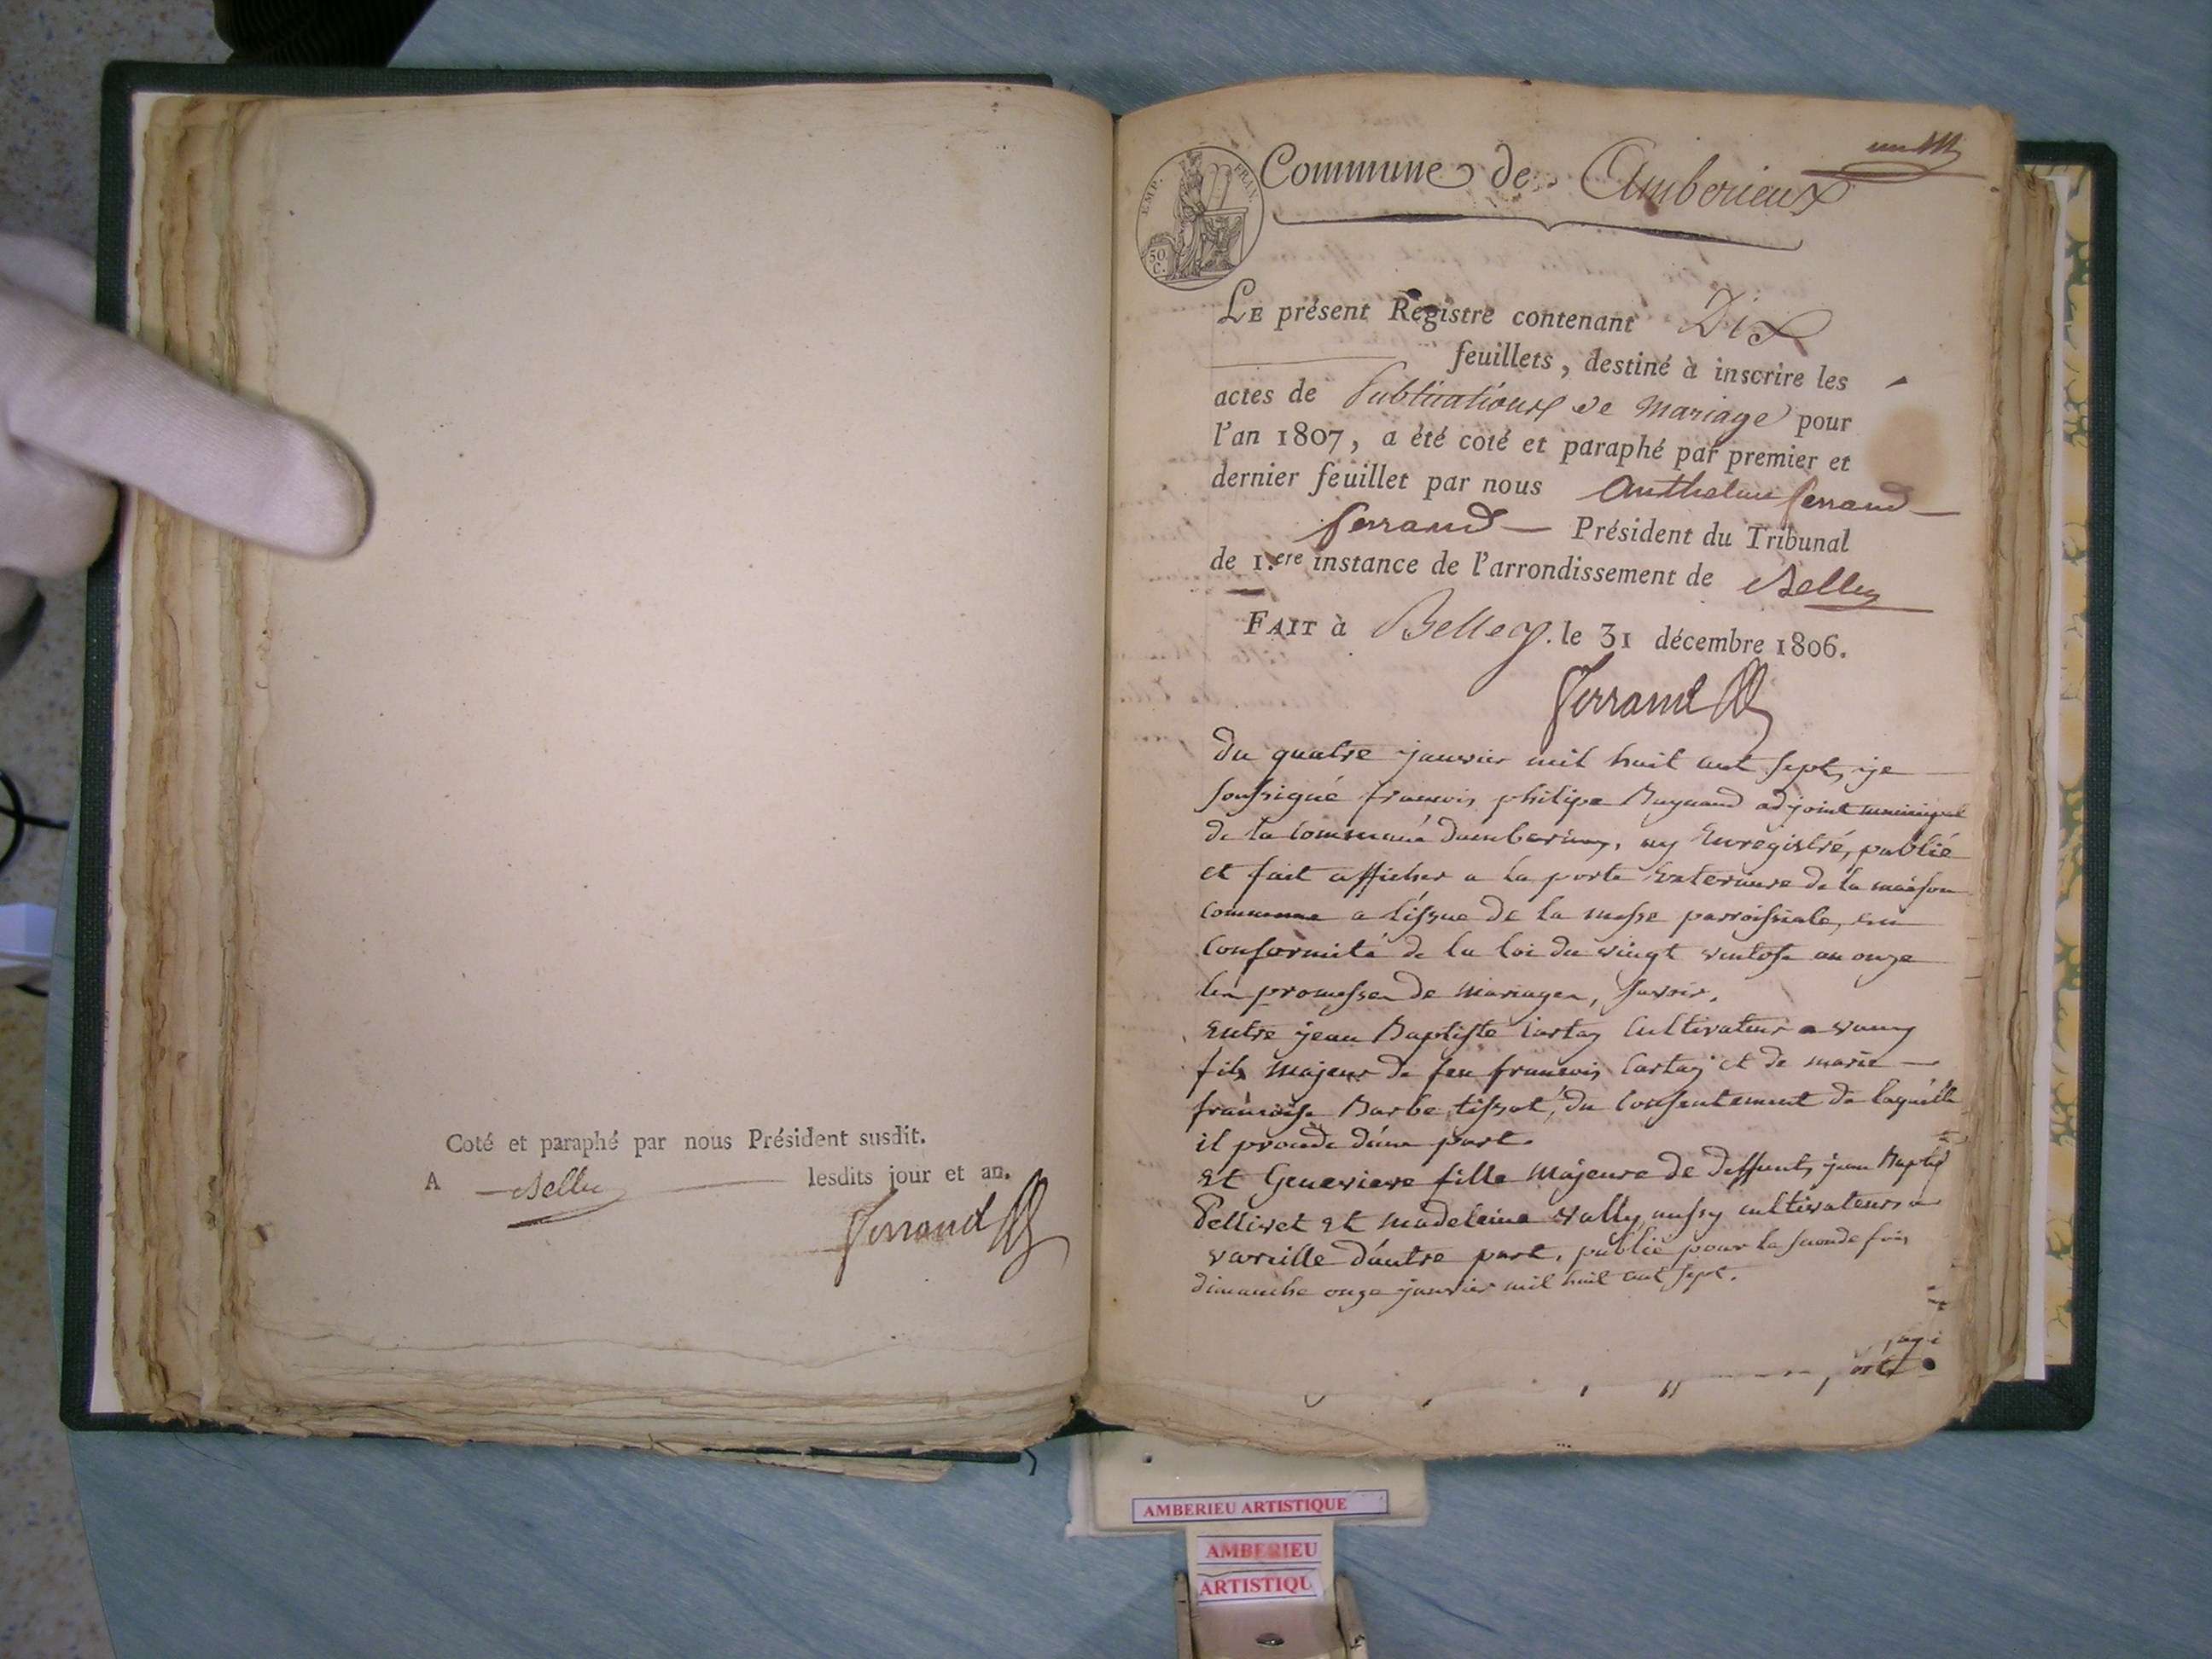 Coté et paraphé par nous Président susdit.
A Belley lesdits jour et an.
Ferrand
EMP. FRAN.
50 C.
un
Commune de Amberieux
LE présent Registre contenant Dix
feuillets, destiné à inscrire les
actes de Publications de Mariage pour
l'an 1807, a été coté et paraphé par premier et
dernier feuillet par nous Anthelme ferrand
ferrand Président du Tribunal
de 1.ere instance de l'arrondissement de Belley
FAIT à Belley. le 31 décembre 1806.
Ferrand
Du quatre janvier mil huit cent sept, je
soussigné francois philipe adjoint municipal
de la commune damberieux, ay Enregistré, publié
et fait afficher a la porte Exterieure de la maison
commune a l'issue de la messe parroissiale, en
conformité de la loi du vingt ventose an onze
les promesses de mariages, savoir,
Entre jean Baptiste Cultivateur a
fils majeur de feu francois et de marie
francoise Barbe tissot, du consentement de laquelle
il procede d'une part.
Et Genevieve fille Majeure de deffunts jean Baptiste
Pellivet et madeleine vally, aussy cultivateurs a
vareille d'autre part, publié pour la seconde fois
dimanche onze janvier mil huit cent sept.
AMBERIEU ARTISTIQUE
AMBERIEU
ARTISTIQU